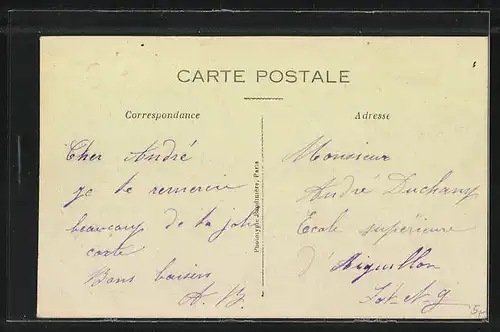 CARTE POSTALE
Correspondance
Adresse
Cher André
je te remercie
beaucoup de ta jolie
carte
Bons baisers
A. B.
Monsieur
André
Ecole supérieure
d'Aiguillon
Lot et G
Paris